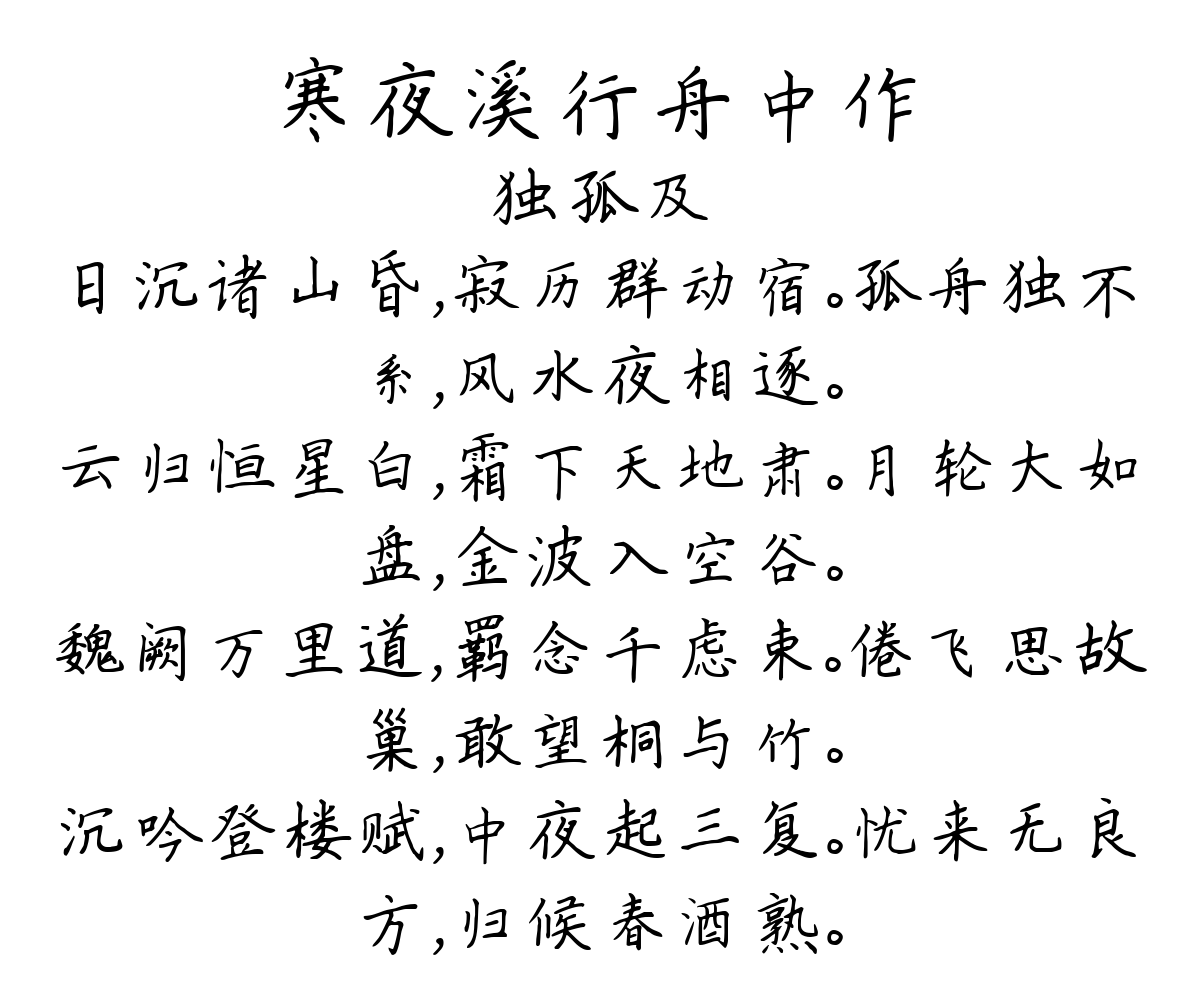 寒夜溪行舟中作
独孤及
日沉诸山昏,寂历群动宿。孤舟独不
系,风水夜相逐。
云归恒星白,霜下天地肃。月轮大如
盘,金波入空谷。
魏阙万里道,羁念千虑束。倦飞思故
巢,敢望桐与竹。
沉吟登楼赋,中夜起三复。忧来无良
方,归候春酒熟。